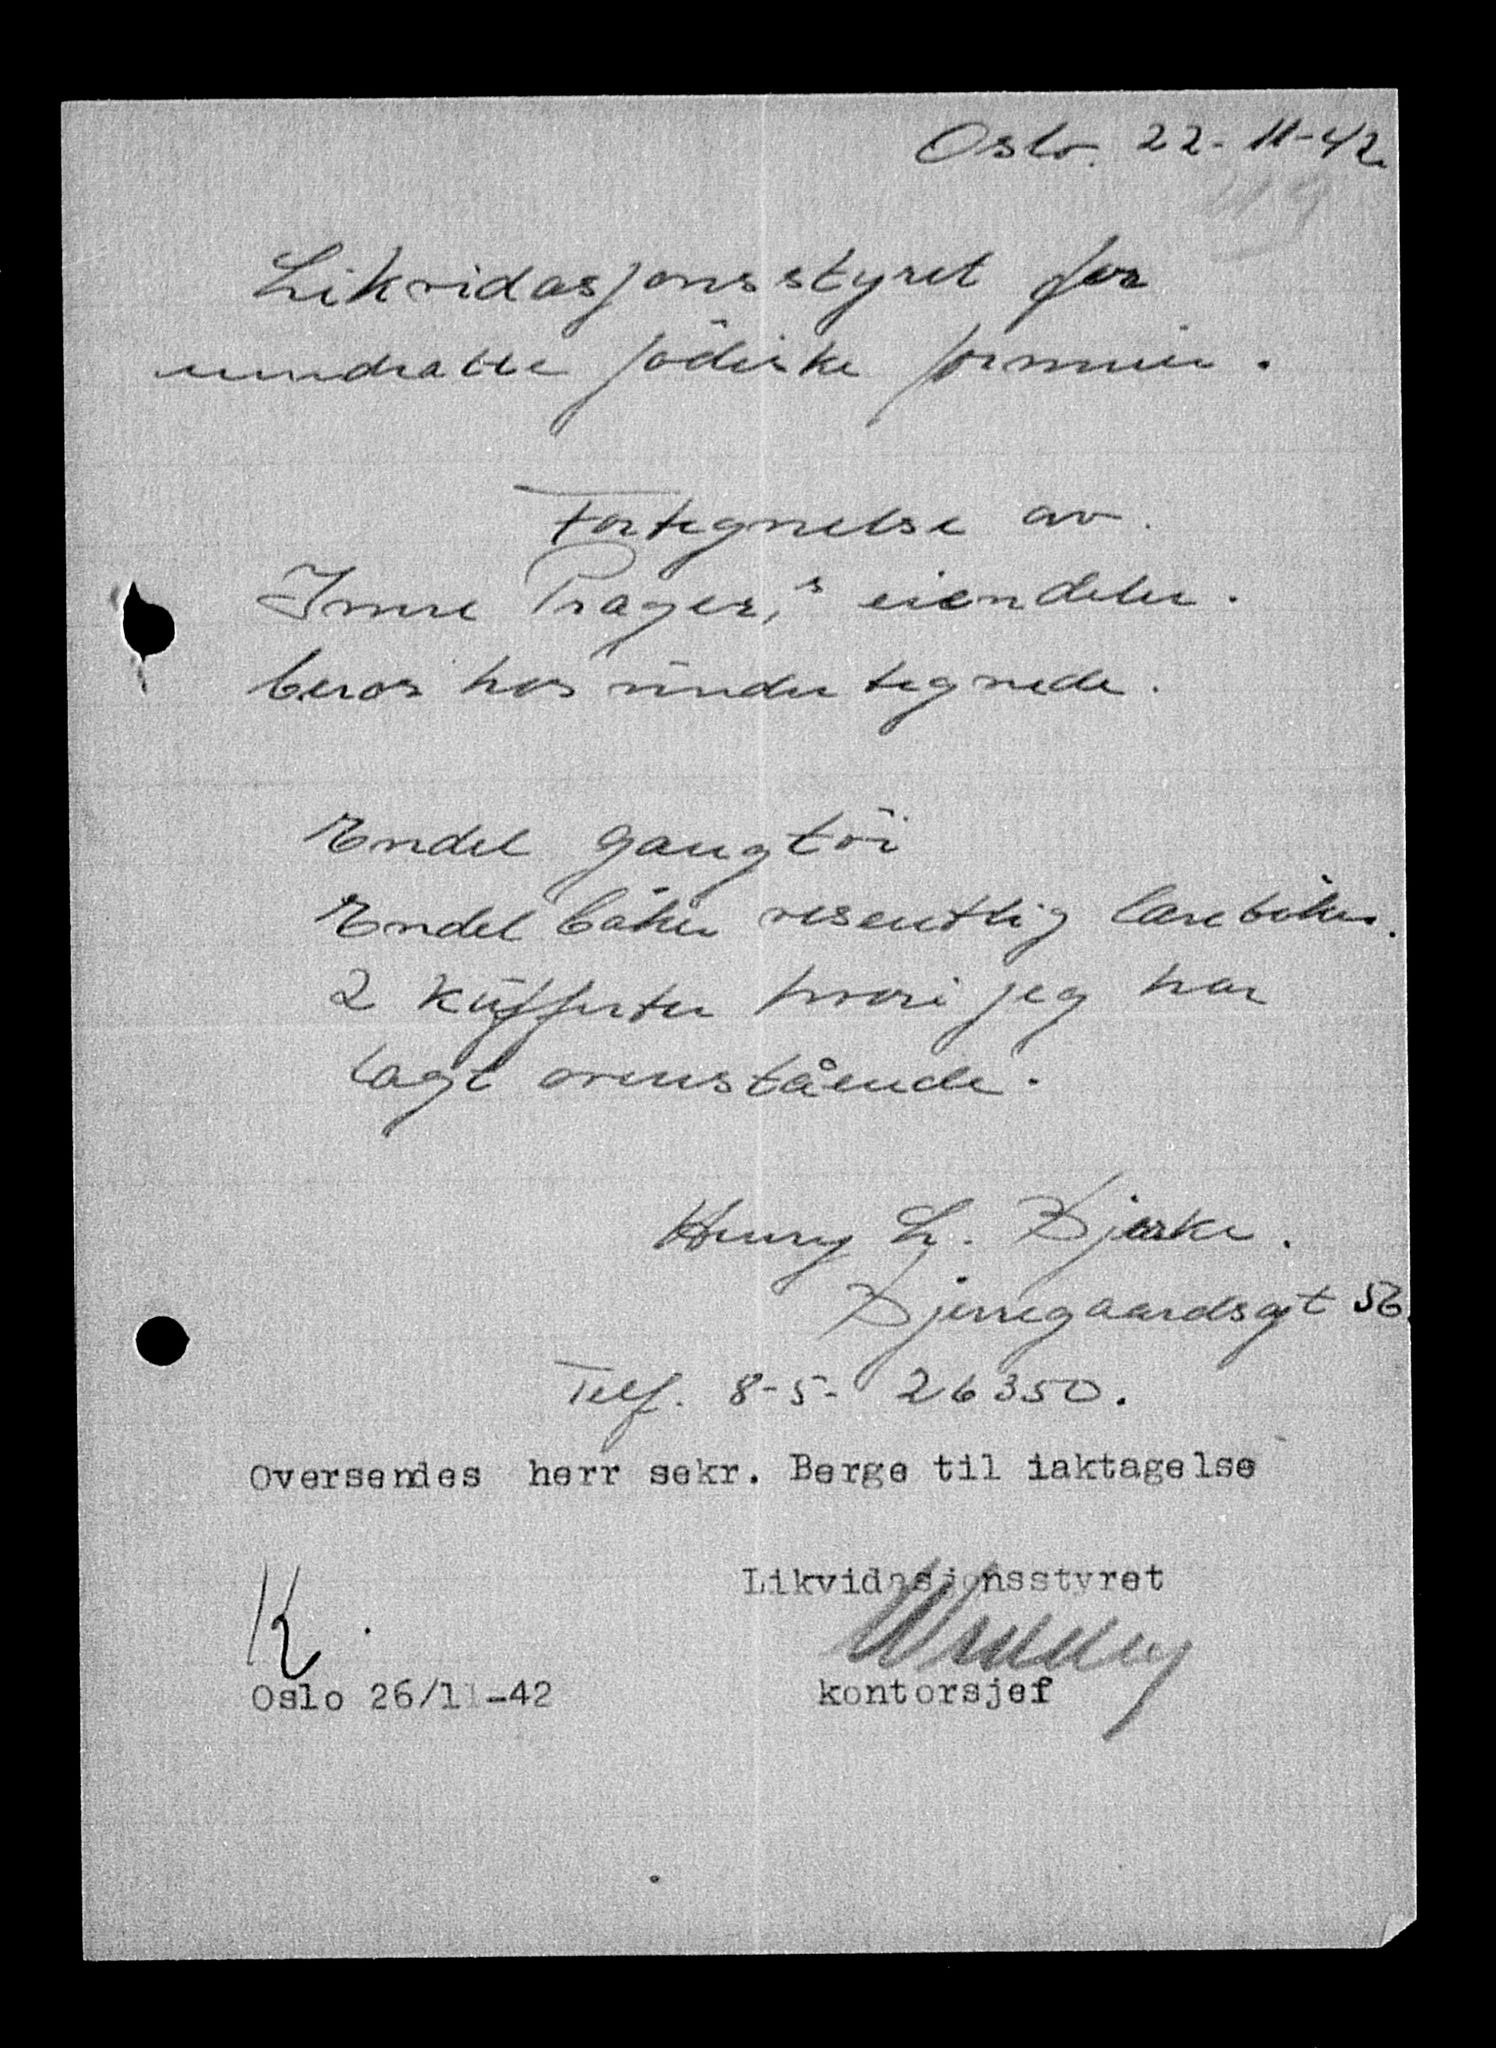 Oslo. 22-11-42.
Likvidasjonsstyret for
inndratte jödiske formuer.
Fortegnelse av.
Imre Prager,s eiendeler.
beros hos undertegnede.
Endel gangtöi
Endel böker vesentlig læreböker.
2 kufferter hvori jeg har
lagt ovenstående.
Henry L. Bjerke.
Bjerregaardsgt 56.
Telf. 8-5- 26350.
Oversendes herr sekr. Berge til iaktagelse
Likvidasjonsstyret
K.
Oslo 26/11-42
kontorsjef